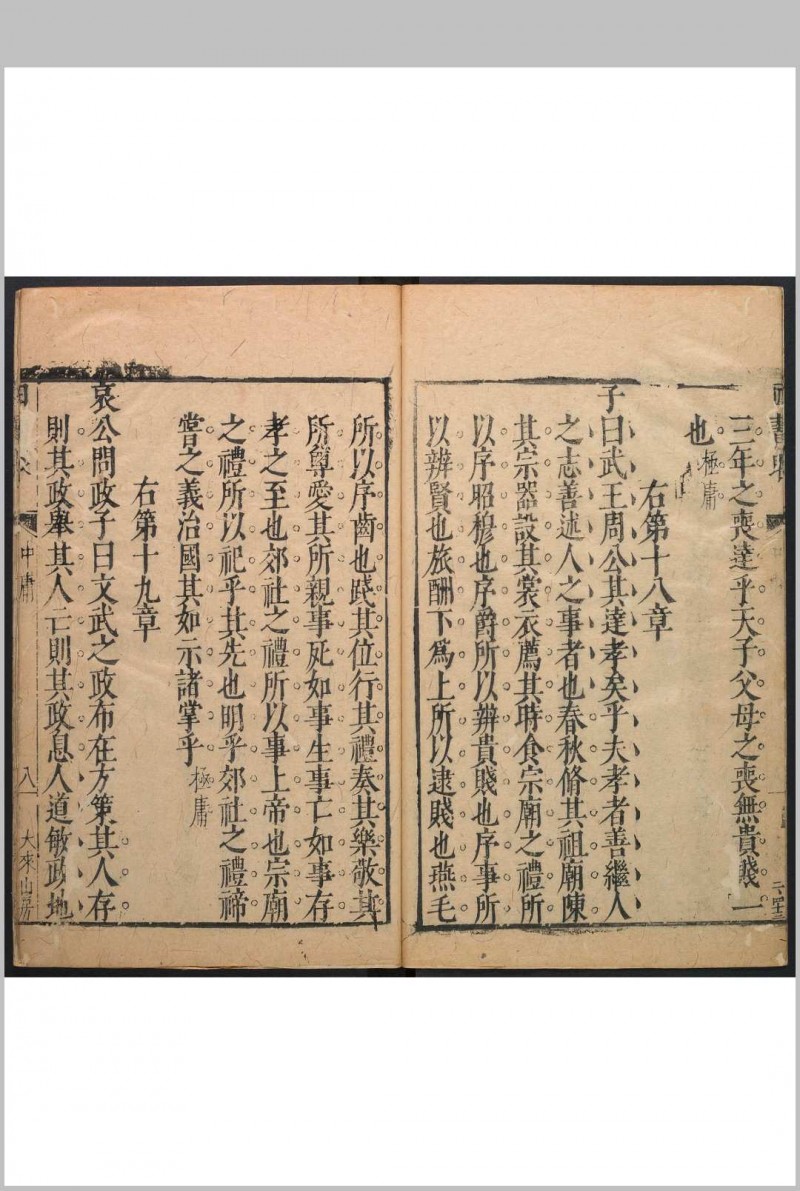 三年之喪達乎天子父母之喪無貴賤一
也極庸
右第十八章
子曰武王周公其達孝矣乎夫孝者善繼人
之志善述人之事者也春秋脩其祖廟陳
其宗器設其裳衣薦其時食宗廟之禮所
以序昭穆也序爵所以辨貴賤也序事所
以辨賢也旅酬下爲上所以逮賤也燕毛
所以序齒也踐其位行其禮奏其樂敬其
所尊愛其所親事死如事生事亡如事存
孝之至也郊社之禮所以事上帝也宗廟
之禮所以祀乎其先也明乎郊社之禮禘
嘗之義治國其如示諸掌乎極庸
右第十九章
哀公問政子曰文武之政布在方策其人存
則其政舉其人亡則其政息人道敏政地
中庸 八 大來山房